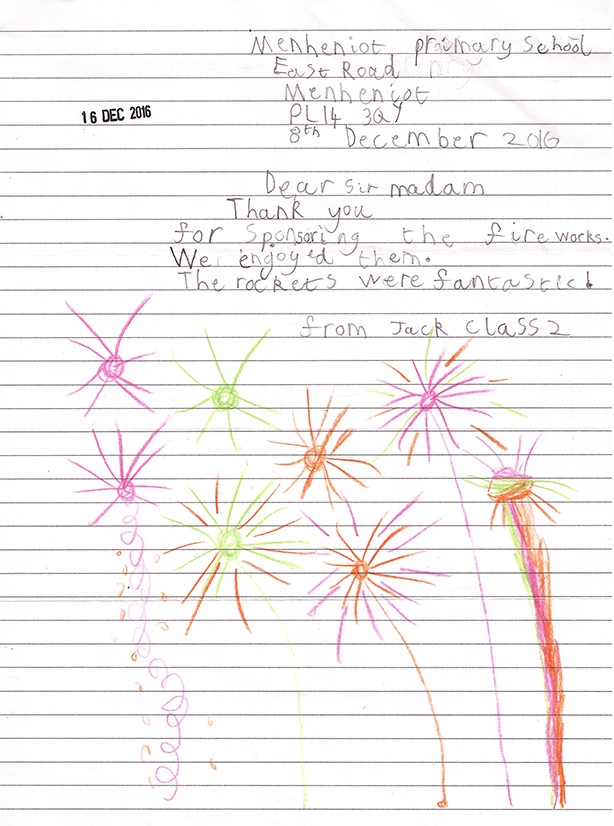 Menheniot primary School
East Road
Menheniot
PL14 3QY
16 DEC 2016
8th December 2016
Dear Sir madam
Thank you
for Sponsoring the fireworks.
We enjoyed them.
The rockets were fantastic!
from Jack Class 2